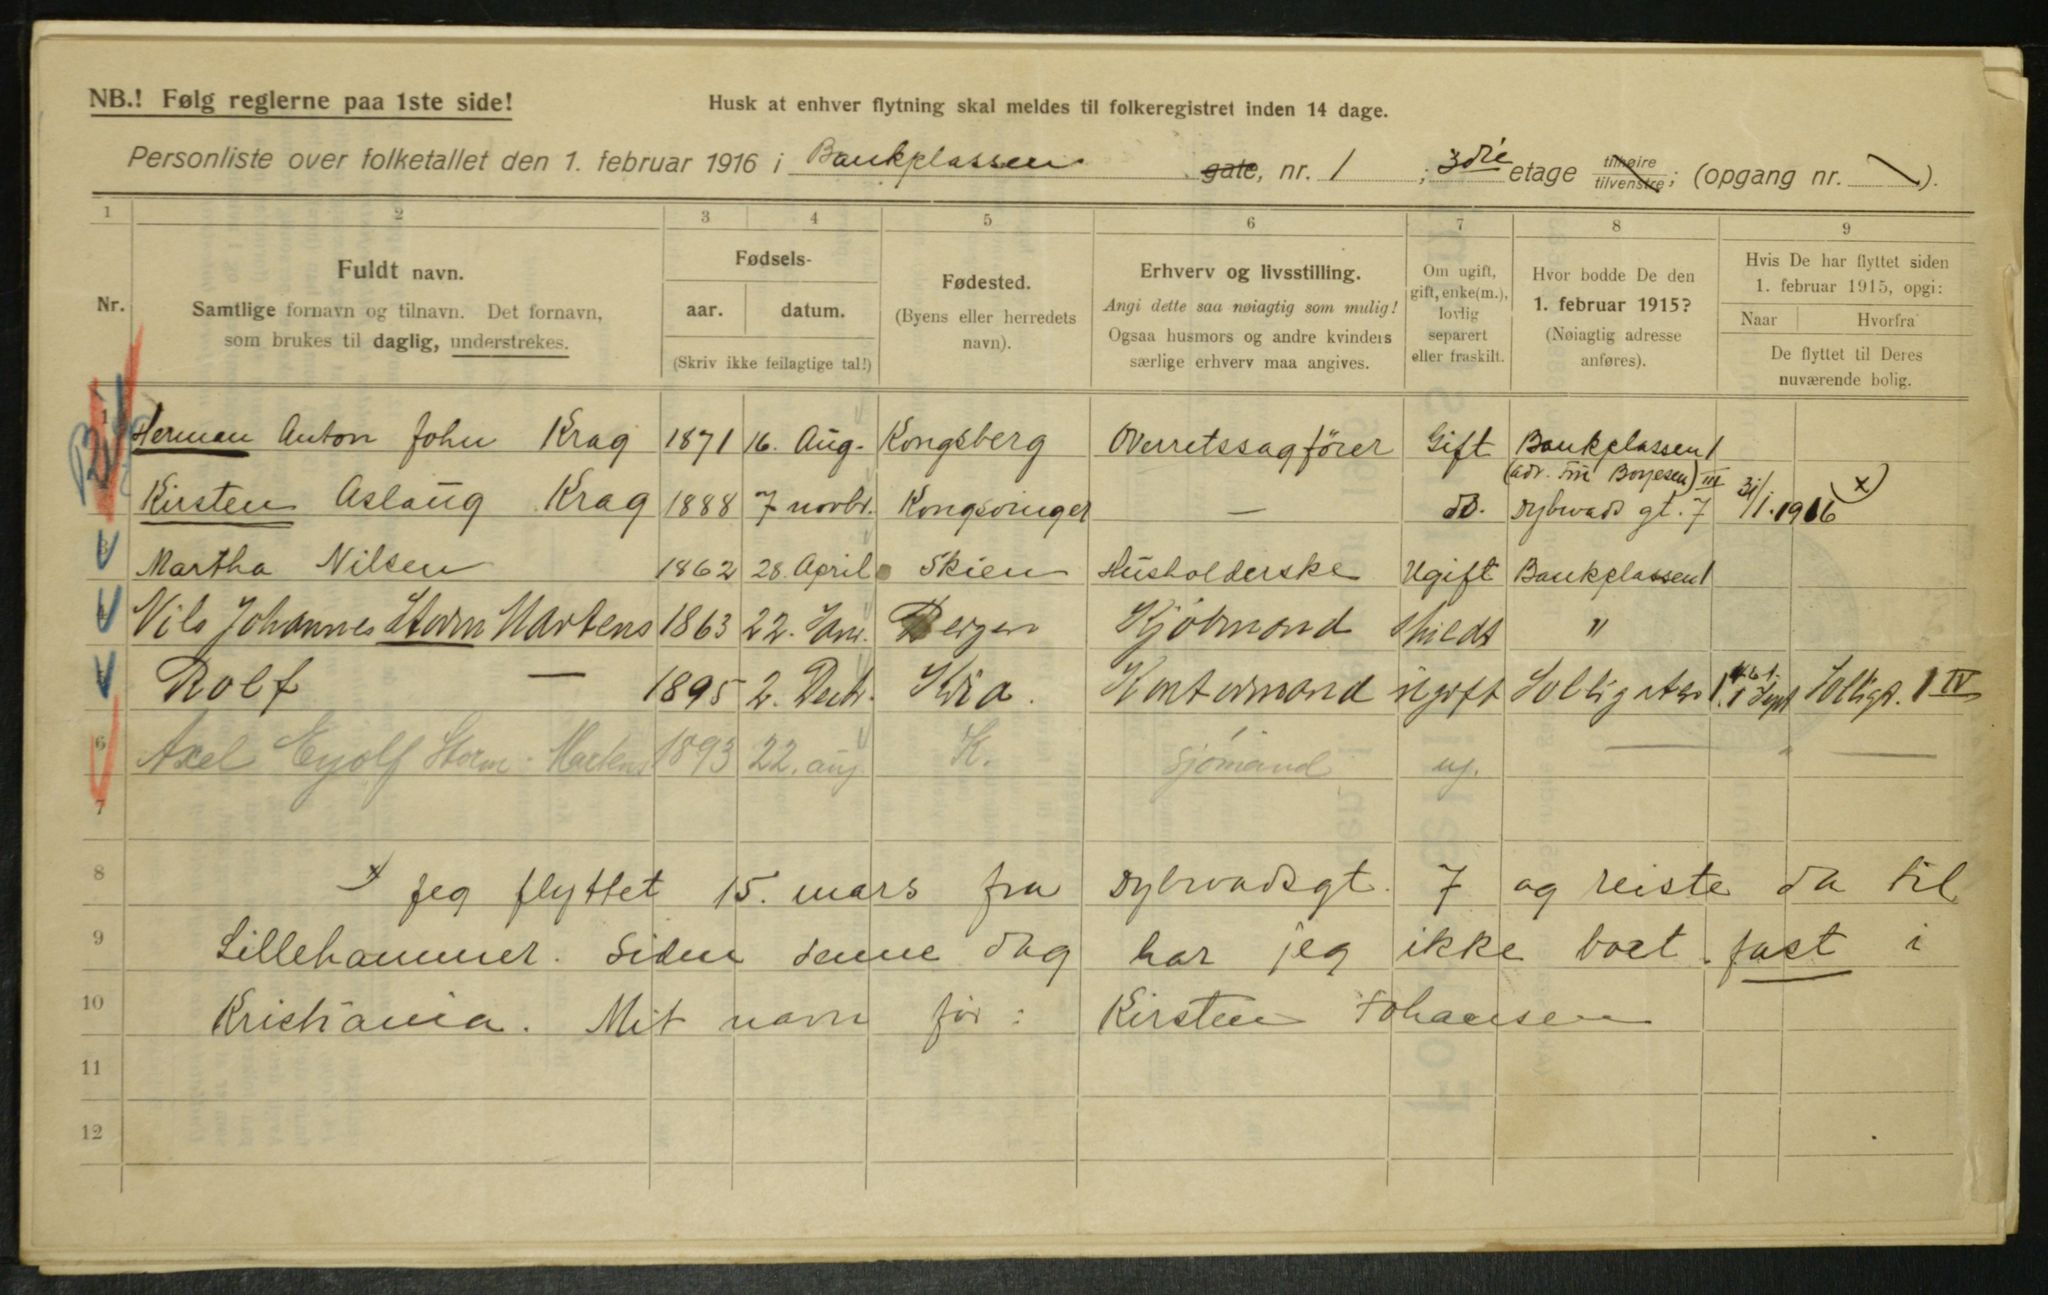 NB.! Følg reglerne paa 1ste side!
Husk at enhver flytning skal meldes til folkeregistret inden 14 dage.
Personliste over folketallet den 1. februar 1916 i Bankplassen gate, nr. 1 ; 3die etage tilhøire tilvenstre; (opgang nr. ).
1 2 3 4 5 6 7 8 9
Nr.
Fuldt navn.
Samtlige fornavn og tilnavn. Det fornavn,
som brukes til daglig, understrekes.
Fødsels-
aar. datum.
(Skriv ikke feilagtige tal!)
Fødested.
(Byens eller herredets
navn).
Erhverv og livsstilling.
Angi dette saa nøiagtig som mulig!
Ogsaa husmors og andre kvinders
særlige erhverv maa angives.
Om ugift,
gift, enke(m.),
lovlig
separert
eller fraskilt.
Hvor bodde De den
1. februar 1915?
(Nøiagtig adresse
anføres).
Hvis De har flyttet siden
1. februar 1915, opgi:
Naar Hvorfra
De flyttet til Deres
nuværende bolig.
1 Herman Anton John Krag 1871 16. Aug. Kongsberg Overretssagfører Gift Bankplassen 1
(adr. Borjesen) III
Kirsten Aslaug Krag 1888 7 novbr. Kongsvinger — do. Dybwads gt. 7 31/1.1916 x)
Martha Nilsen 1862 28. April Skien Husholderske Ugift Bankplassen 1
Nils Johannes Storm Martens 1863 22. Janr. Bergen Kjöbmand skildt "
Rolf — 1895 2. Decbr. Kria. Kontormand ugift Solligaten 1. 1 Sept Solligt. 1 IV
6 Axel Eyolf Storm-Martens 1893 22. aug K. Sjömand ug. — " —
7
8 x) Jeg flyttet 15. mars fra Dybwadsgt. 7 og reiste da til
9 Lillehammer. Siden denne dag har jeg ikke boet fast i
10 Kristiania. Mit navn för: Kirsten Johansen
11
12